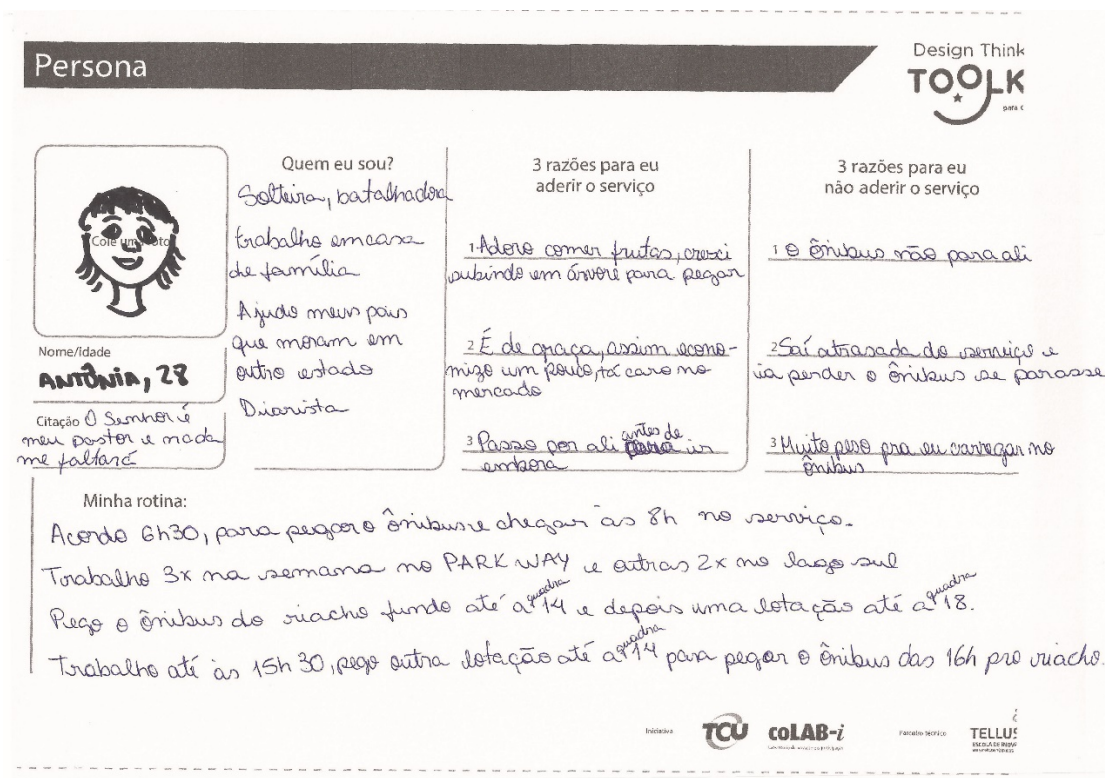 Persona
Design Think
TOOLK
para
Cole um foto
Nome/idade
ANTÔNIA, 28
Citação O Senhor é
meu pastor e nada
me faltará
Quem eu sou?
Solteira, batalhadora
trabalho em casa
de família
Ajudo meus pais
que moram em
outro estado
Diarista
3 razões para eu
aderir o serviço
1 Adoro comer frutas, cresci
subindo em árvore para pegar
2 É de graça, assim econo-
mizo um pouco, tá caro no
mercado
3 Passo por ali antes de ir
embora
3 razões para eu
não aderir o serviço
1 O ônibus não para ali
2 Saí atrasada do serviço e
ia perder o ônibus se parasse
3 Muito peso pra eu carregar no
ônibus
Minha rotina:
Acordo 6h30, para pegar o ônibus e chegar às 8h no serviço.
Trabalho 3x na semana no PARK WAY e outras 2x no lago sul
Pego o ônibus do riacho fundo até a quadra 14 e depois uma lotação até a quadra 18.
Trabalho até às 15h30, pego outra lotação até a quadra 14 para pegar o ônibus das 16h pro riacho.
Iniciativa
TCU
coLAB-i
Parceiro técnico
TELLUS